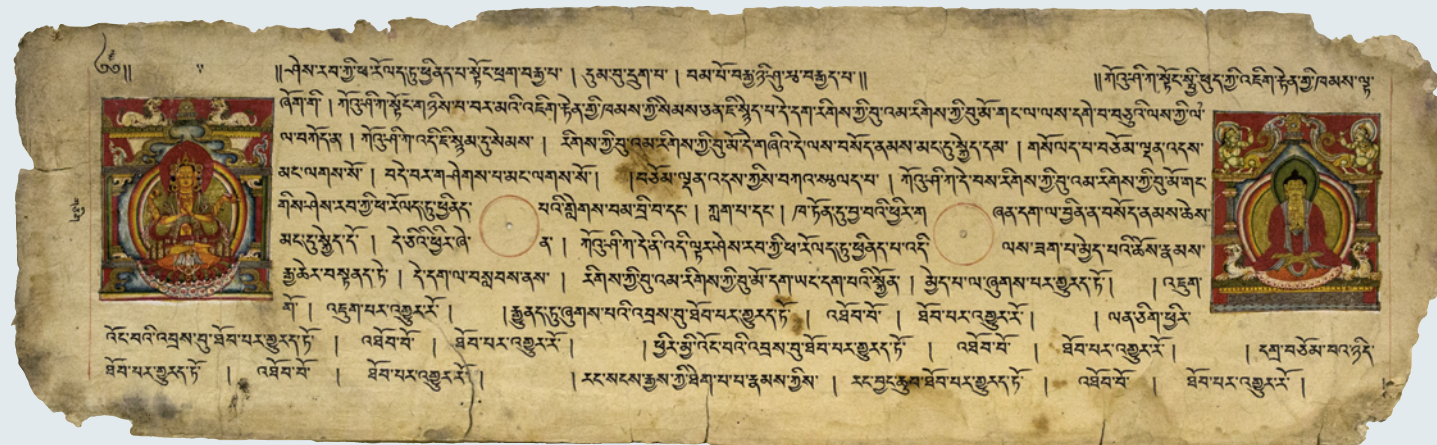 ༄༅།། །།ཤེས་རབ་ཀྱི་ཕ་རོལད་ཏུ་ཕྱིནད་པ་སྟོང་ཕྲག་བརྒྱ་པ་ །དུམ་བུ་དྲུག་པ་ །བམ་པོ་བརྒྱ་ཉི་ཤུ་རྩ་བརྒྱད་པ་།། །།ཀོའུ་ཤི་ཀ་སྟོང་སྤྱི་ཕུད་ཀྱི་འཇིག་རྟེན་གྱི་ཁམས་ལྟ་
ཞོག་གི །ཀོའུ་ཤི་ཀ་སྟོང་གཉིས་པ་བར་མའི་འཇིག་རྟེན་གྱི་ཁམས་ཀྱི་སེམས་ཅན་ཇི་སྙེད་པ་དེ་དག་རིགས་ཀྱི་བུ་འམ་རིགས་ཀྱི་བུ་མོ་གང་ལ་ལས་དགེ་བ་བཅུའི་ལས་ཀྱི་ལཾ་
ལ་བཀོད་ན། ཀོའུ་ཤི་ཀ་འདི་ཇི་སྙམ་དུ་སེམས། རིགས་ཀྱི་བུ་འམ་རིགས་ཀྱི་བུ་མོ་དེ་གཞིའི་དེ་ལས་བསོད་ནམས་མང་དུ་སྐྱེད་དམ། གསོལད་པ་བཅོམ་ལྡན་འདས་
མང་ལགས་སོ། བདེ་བར་གཤེགས་པ་མང་ལགས་སོ། །བཅོམ་ལྡན་འདས་ཀྱིས་བཀའ་སྩལད་པ་ །ཀོའུ་ཤི་ཀ་དེ་བས་རིགས་ཀྱི་བུ་འམ་རིགས་ཀྱི་བུ་མོ་གང་
གིས་ཤེས་རབ་ཀྱི་ཕ་རོལད་ཏུ་ཕྱིནད་ པའི་གླེགས་བམ་བྲི་བ་དང་། ཀླག་པ་དང་། ཁ་ཏོན་དུ་བྱ་བའི་ཕྱིར་ག ཞན་དག་ལ་བྱིན་ན་བསོད་ནམས་ཆེས་
མང་དུ་སྐྱེད་དོ། དེ་ཅིའི་ཕྱིར་ཞེ་ ན། ཀོའུ་ཤི་ཀ་དེ་ནི་འདི་ལྟར་ཤེས་རབ་ཀྱི་ཕ་རོལད་ཏུ་ཕྱིནད་པ་འདི་ ལས་ཟག་པ་མྱེད་པའི་ཆོས་རྣམས་
རྒྱ་ཆེར་བསྟནད་ཏེ། དེ་དག་ལ་བསླབས་ནས། རིགས་ཀྱི་བུ་འམ་རིགས་ཀྱི་བུ་མོ་དག་ཡང་དག་པའི་སྐྱོན། མྱེད་པ་ལ་ཞུགས་པར་གྱུརད་ཏོ། །འཇུག་
གོ། འཇུག་པར་འགྱུར་རོ། །རྒྱུནད་ཏུ་ཞུགས་པའི་འབྲས་བུ་ཐོབ་པར་གྱུརད་ཏོ། འཐོབ་བོ། ཐོབ་པར་འགྱུར་རོ། །ལན་ཅིག་ཕྱིར་
འོང་བའི་འབྲས་བུ་ཐོབ་པར་གྱུརད་ཏོ། འཐོབ་བོ། ཐོབ་པར་འགྱུར་རོ། །ཕྱིར་མྱི་འོང་བའི་འབྲས་བུ་ཐོབ་པར་གྱུརད་ཏོ། འཐོབ་བོ། ཐོབ་པར་འགྱུར་རོ། །དགྲ་བཅོམ་བའ་ཉིད་
ཐོབ་པར་གྱུརད་ཏོ། འཐོབ་བོ། ཐོབ་པར་འགྱུར་རོ། །རང་སངས་རྒྱས་ཀྱི་ཐེག་པ་པ་རྣམས་ཀྱིས་ །རང་བྱང་ཆུབ་ཐོབ་པར་གྱུརད་ཏོ། འཐོབ་བོ། ཐོབ་པར་འགྱུར་རོ།